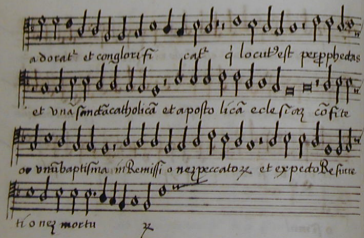 adorat᷒ et conglorifi cat᷒ q̇ locut᷒ est per ꝓphetas
et unā sanctā catholicā et apostolicā eclesiaꝫ cōfite
or unū baptisma in Remissi o neꝫ peccatoꝝ et expecto Resurre
ti o neꝫ mortu oꝝ